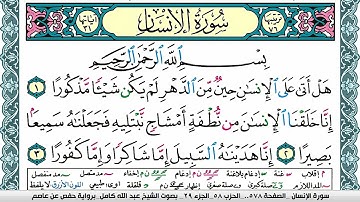 سُورَةُ الْإِنْسَانِ
بِسْمِ اللَّهِ الرَّحْمَٰنِ الرَّحِيمِ
هَلْ أَتَىٰ عَلَى الْإِنسَانِ حِينٌ مِّنَ الدَّهْرِ لَمْ يَكُن شَيْئًا مَّذْكُورًا ١
إِنَّا خَلَقْنَا الْإِنسَانَ مِن نُّطْفَةٍ أَمْشَاجٍ نَّبْتَلِيهِ فَجَعَلْنَاهُ سَمِيعًا
بَصِيرًا ٢ إِنَّا هَدَيْنَاهُ السَّبِيلَ إِمَّا شَاكِرًا وَإِمَّا كَفُورًا ٣
سورة الإنسان _ الصفحة ٥٧٨ _ الحزب ٥٨ _ الجزء ٢٩ _ بصوت الشيخ عبد الله كامل _ برواية حفص عن عاصم